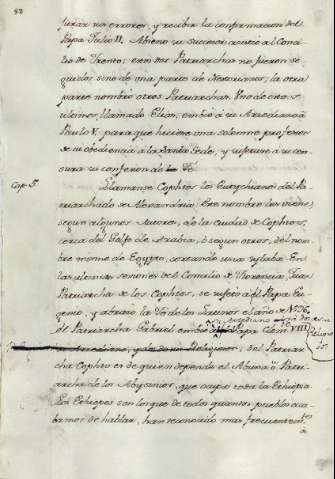 52
jurar sus errores, y recibir la confirmacion del
Papa Julio II. Abieno su sucesor asistió al Conci
lio de Trento; estos dos Patriarchas no fueron se
guidos sino de una parte de Nestorianos; la otra
parte nombró otros Patriarchas. Uno de estos ul
timos, llamado Elias, embió a su Arcediano à
Paulo V. para que hiciese una solemne profesion
de su obediencia à la Santa Sede, y sujetase à su cen
sura su confesion de Fe.
Cap. 5.
Llamanse Cophtos los Eutychianos del Pa
triarchado de Alexandria. Este nombre les viene,
segun algunos Autores, de la ciudad de Cophtos,
cerca del Golfo de Arabia, ò segun otros, del nom
bre mismo de Egypto, cortando una sylaba. En
las ultimas sesiones del Concilio de Florencia, Juan
Patriarcha de los Cophtos, se sujetó al Papa Eu
genio, y abrazó la Fe de los Latinos el año de
el Patriarcha Gabriel embió al Papa Clem. VIII
su Arcediano, y dos Religiosos, del Patriar
cha Cophto es de quien depende el Abuna ò Patri
archa de los Abysinios, que ocupa toda la Ethiopia.
Los Ethiopes son los que de todos quantos pueblos aca
bamos de hablar, han reconocido mas frequentemte